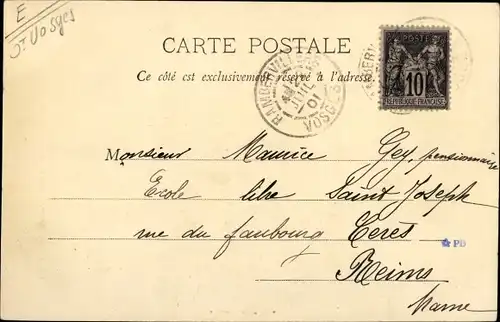 E
Dt Vosges
CARTE POSTALE
Ce côté est exclusivement réservé à l'adresse.
RAMBERVILLERS
JUIL
01
VOSGES
POSTE
10
REPUBLIQUE FRANÇAISE
Monsieur Maurice Gey, pensionnaire
Ecole libre Saint Joseph
rue du faubourg Cerès
PB
Reims
Marne